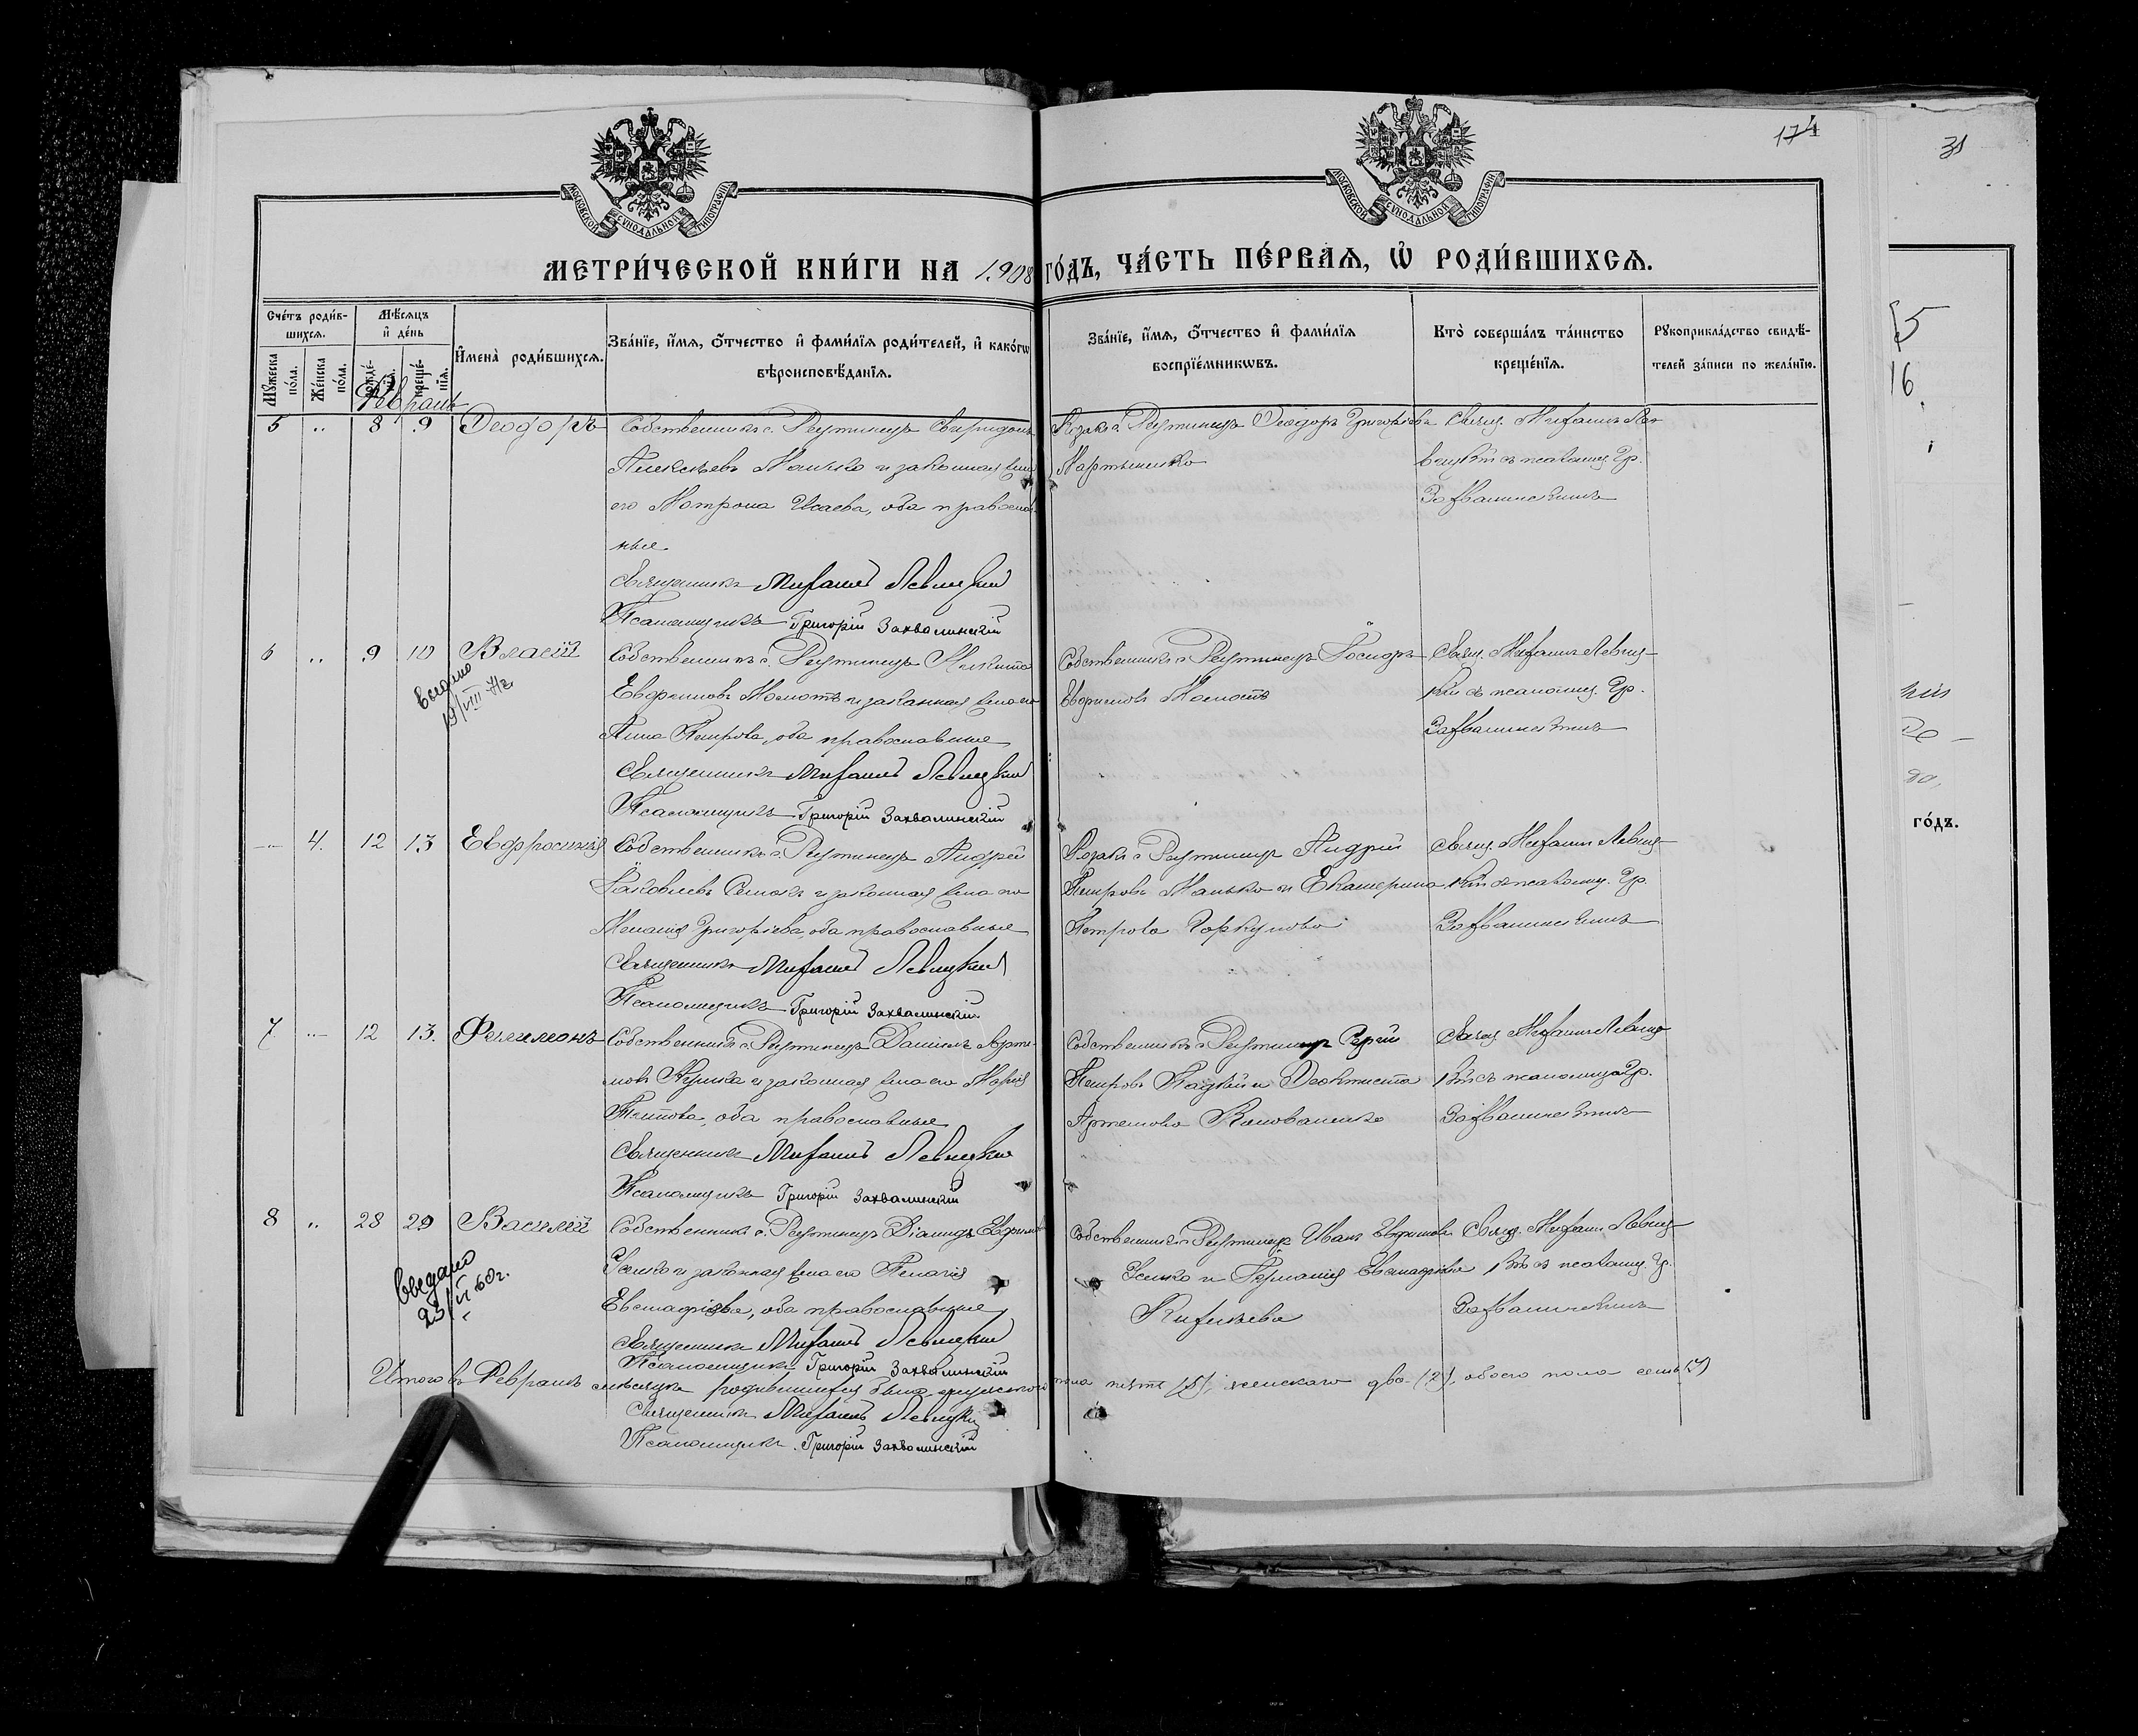 174
31
МОСКОВСКОЙ СУНОДАЛЬНОЙ ТИПОГРАФІИ
МОСКОВСКОЙ СУНОДАЛЬНОЙ ТИПОГРАФІИ
МЕТРИ́ЧЕСКОЙ КНИ́ГИ НА 1908 ГО́ДЪ, ЧА́СТЬ ПЕ́РВАѦ, Ѽ РОДИ́ВШИХСѦ.
Сче́тъ роди́в-
шихсѧ.
Мѹ́жеска по́ла.
Же́нска по́ла.
Мѣ́сѧцъ
и҆ де́нь
креще́-
нїѧ.
И҆мена̀ роди́вшихсѧ.
Зва́нїе, и҆́мѧ, ѻ҆́тчество и҆ фами́лїѧ роди́телей, и҆ како́гѡ
вѣроисповѣ́данїѧ.
Зва́нїе, и҆́мѧ, ѻ҆́тчество и҆ фами́лїѧ
воспрїе́мникѡвъ.
Кто̀ соверша́лъ та́инство
креще́нїѧ.
Рꙋкоприкла́дство свидѣ́-
телей за́писи по жела́нїю.
Февраль
5 „ 8 9 Ѳеодоръ
Собственникъ с. Реутинецъ Свиридонъ
Алексѣевъ Манько и законная жена
его Матрона Исаева, оба православ-
ные.
Священникъ Михаилъ Левицкій
Псаломщикъ Григорій Захвалинскій
Козакъ с. Реутинецъ Ѳеодоръ Григорьевъ
Мартыненко
Свящ. Михаилъ Ле-
вицкій съ псаломщ. Гр.
Захвалинскимъ
6 „ 9 10 Власій
Собственникъ с. Реутинецъ Никита
Евфимовъ Молотъ и законная жена его
Анна Петрова, оба православные
Священникъ Михаилъ Левицкій
Псаломщикъ Григорій Захвалинскій
19/VIII-71г.
Собственникъ с. Реутинецъ
Евфимовъ Молотъ
Свящ. Михаилъ Левиц-
кій съ псаломщ. Гр.
Захвалинскимъ
4. 12 13 Евфросинія
Собственникъ с. Реутинецъ Андрей
Яковлевъ и законная жена его
Меланія Григорьева, оба православные
Священникъ Михаилъ Левицкій
Псаломщикъ Григорій Захвалинскій
Козакъ с. Реутинецъ Андрей
Петровъ Манько и Екатерина
Петрова
Свящ. Михаилъ Левиц-
кій съ псаломщ. Гр.
Захвалинскимъ
7 12 13. Филимонъ
Собственникъ с. Реутинецъ Даніилъ
и законная жена его Марія
Титова, оба православные
Священникъ Михаилъ Левицкій
Псаломщикъ Григорій Захвалинскій
Собственникъ с. Реутинецъ
Петровъ и Ѳеоктиста
Артемова Коноваленко
Свящ. Михаилъ Левиц-
кій съ псаломщ. Гр.
Захвалинскимъ
8 „ 28 29 Василій
Собственникъ с. Реутинецъ Діамидъ Евфимовъ
Усенко и законная жена его Пелагія
Евстафіева, оба православные
Священникъ Михаилъ Левицкій
Псаломщикъ Григорій Захвалинскій
23/VI 60г.
Собственникъ с. Реутинецъ Иванъ Евфимовъ
Усенко и Евстафіева
Свящ. Михаилъ Левиц-
кій съ псаломщ. Гр.
Захвалинскимъ
Итого въ Февралѣ мѣсяцѣ родившихся было мужского пола пять (5), женскаго два (2), обоего пола семь (7)
Священникъ Михаилъ Левицкій
Псаломщикъ Григорій Захвалинскій
16.
го́дъ.